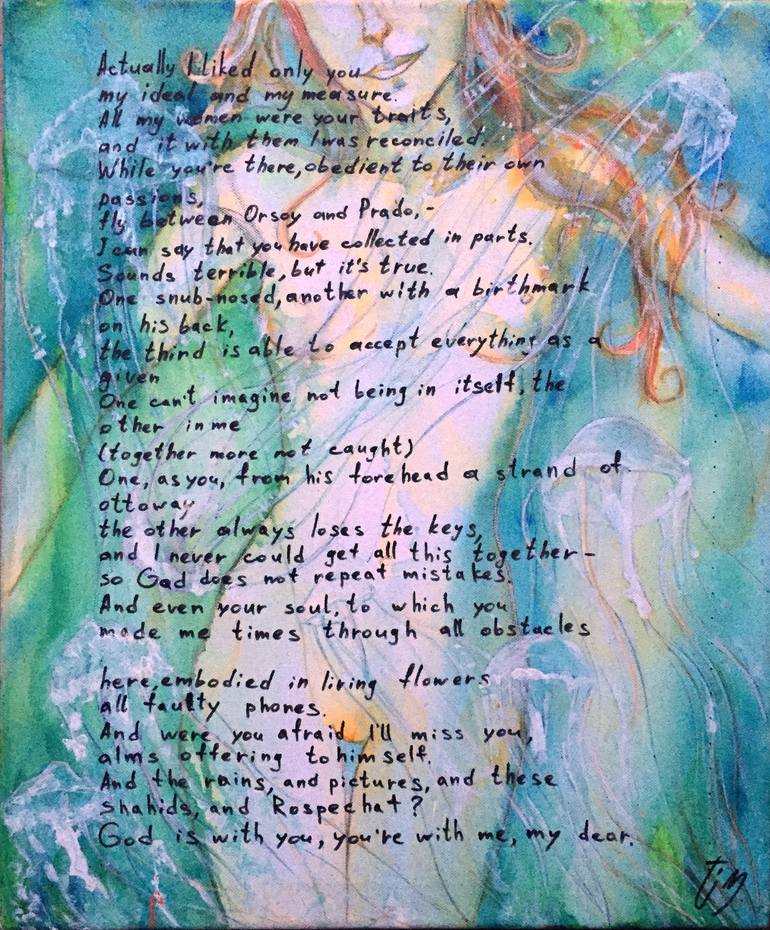 Actually I liked only you
my ideal and my measure.
All my women were your traits,
and it with them I was reconciled.
While you're there, obedient to their own
passions,
fly between Orsay and Prado,-
I can say that you have collected in parts.
Sounds terrible, but it's true.
One snub-nosed, another with a birthmark
on his back,
the third is able to accept everything as a
given
One can't imagine not being in itself, the
other in me
(together more not caught)
One, as you, from his forehead a strand of
ottoway
the other always loses the keys,
and I never could get all this together-
so God does not repeat mistakes.
And even your soul, to which you
made me times through all obstacles
here, embodied in living flowers
all faulty phones.
And were you afraid I'll miss you,
alms offering to himself.
And the rains, and pictures, and these
shahids, and Rospechat?
God is with you, you're with me, my dear.
Tim